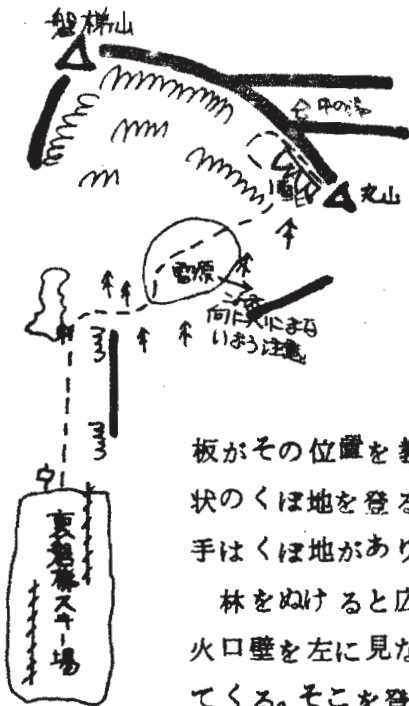 磐梯山
中の湯
丸山
雪原
この方
向に入りこまな
いよう注意
裏磐梯スキー場
板がその位置を
状のくぼ地を登る
手はくぼ地があり
林をぬけると広
火口壁を左に見な
てくる。そこを登